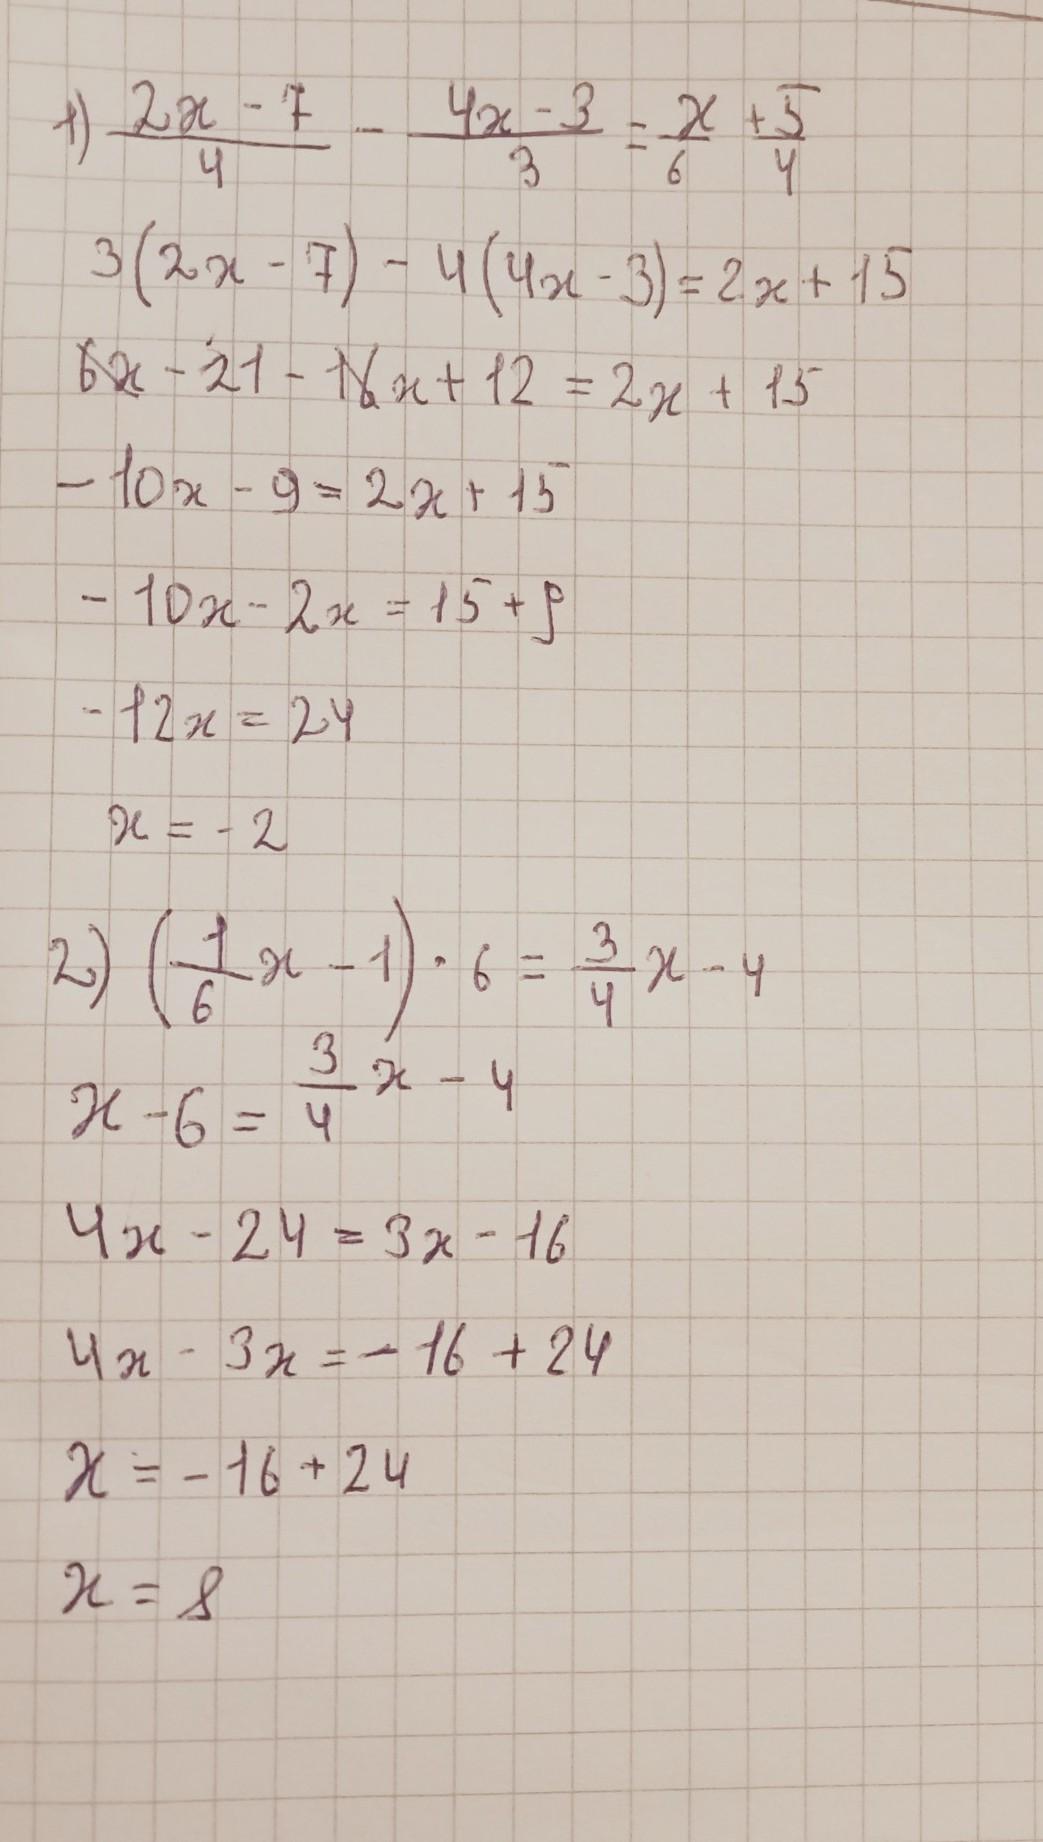 1) (2x - 7)/4 - (4x - 3)/3 = x/6 + 5/4
3(2x - 7) - 4(4x - 3) = 2x + 15
6x - 21 - 16x + 12 = 2x + 15
- 10x - 9 = 2x + 15
- 10x - 2x = 15 + 9
- 12x = 24
x = - 2
2) (1/6 x - 1) · 6 = 3/4 x - 4
x - 6 = 3/4 x - 4
4x - 24 = 3x - 16
4x - 3x = - 16 + 24
x = - 16 + 24
x = 8